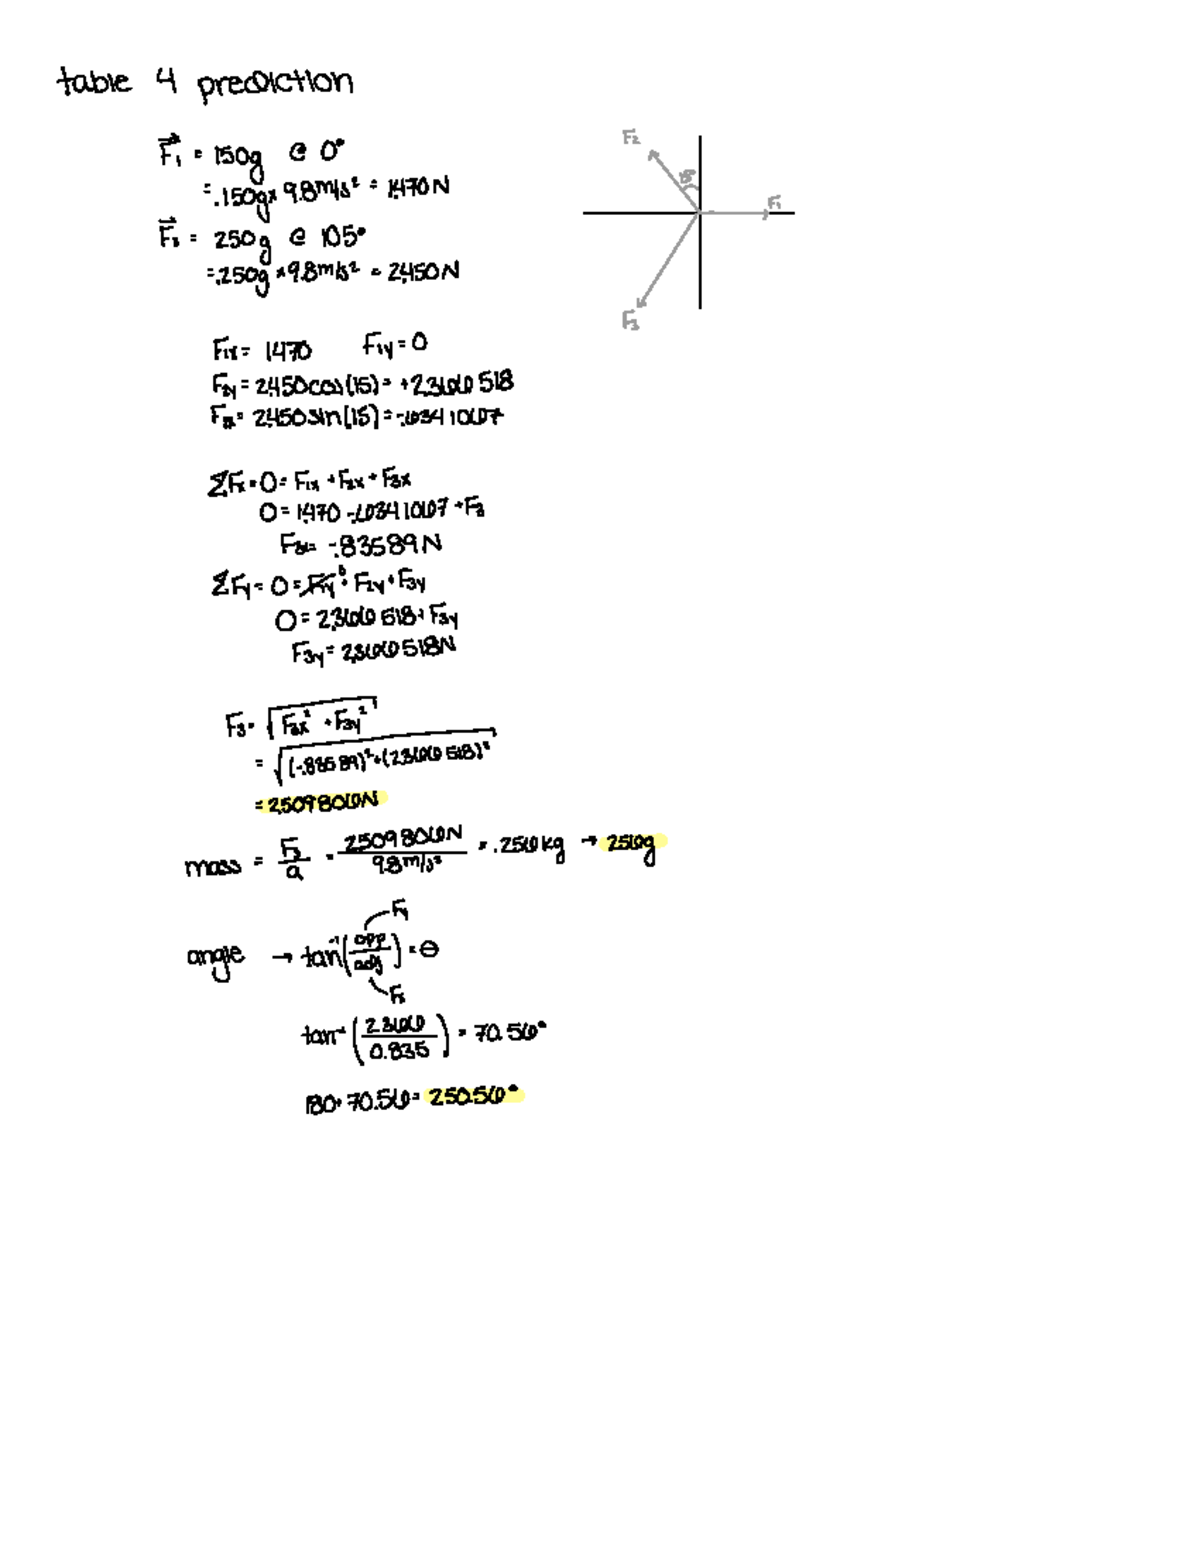 table 4 prediction
F₁ = 150g @ 0°
= .150g × 9.8m/s² = 1.470N
F₂ = 250g @ 105°
= .250g × 9.8m/s² = 2.450N
F₂
15°
F₁
F₃
F₁ₓ = 1.470 F₁y = 0
F₂y = 2.450cos(15) = +2.366518
F₂ₓ = 2.450sin(15) = -.6341067
ΣFₓ = 0 = F₁ₓ + F₂ₓ + F₃ₓ
0 = 1.470 - .6341067 + F₃
F₃ₓ = -.83589N
ΣFy = 0 = F₁y⁰ + F₂y + F₃y
0 = 2.366518 + F₃y
F₃y = 2.366518N
F₃ = √(F₃ₓ² + F₃y²)
= √((-.83589)² + (2.366518)²)
= 2.509806N
mass = F₃/a = 2.509806N/9.8m/s² = .256kg → 256g
angle → tan⁻¹(opp/adj) = θ
Fy
Fₓ
tan⁻¹(2.366/0.835) = 70.56°
180 + 70.56 = 250.56°